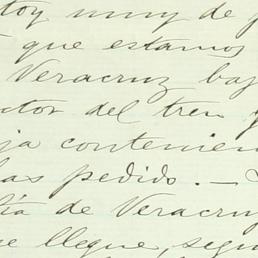 toy muy de
que estamos
Veracruz baj
ctor del tren y
ja contenien
las pedido. —
tía de Veracruz
e llegue, segu